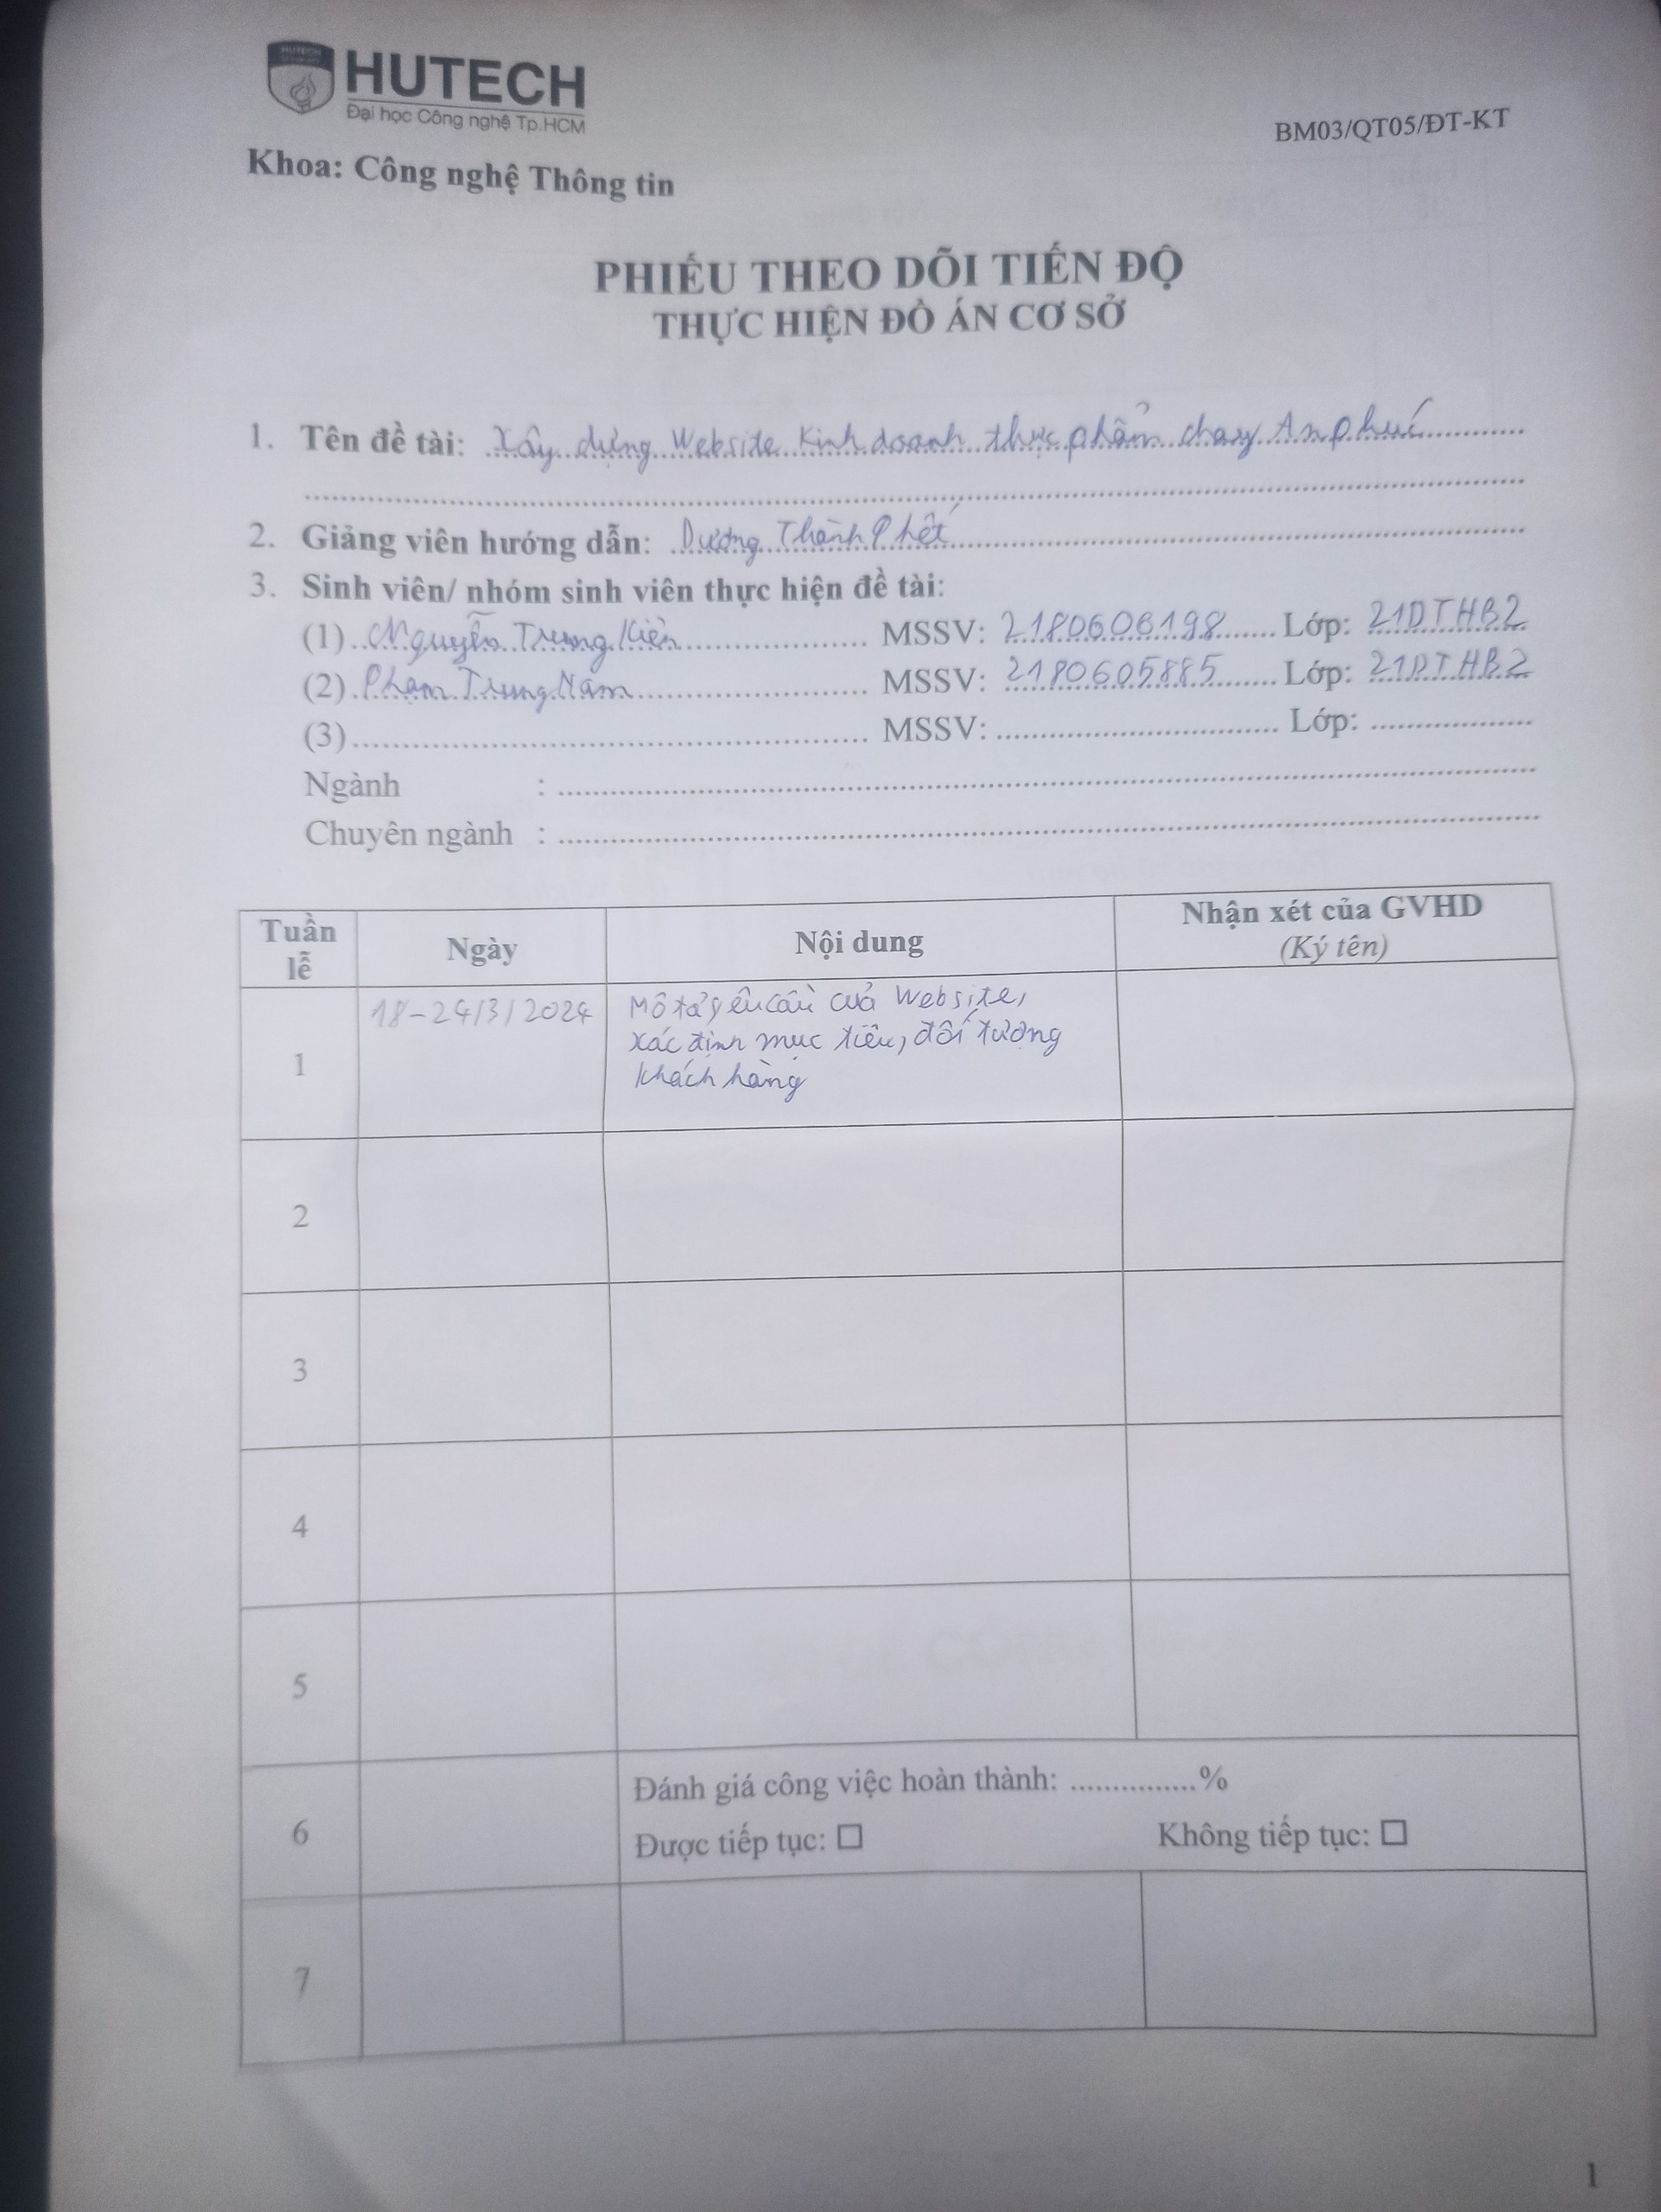 HUTECH
HUTECH
Đại học Công nghệ Tp.HCM
BM03/QT05/ĐT-KT
Khoa: Công nghệ Thông tin
PHIẾU THEO DÕI TIẾN ĐỘ
THỰC HIỆN ĐỒ ÁN CƠ SỞ
1. Tên đề tài: Xây dựng Website Kinh doanh thực phẩm chay An phúc
2. Giảng viên hướng dẫn: Dương Thành Phết
3. Sinh viên/ nhóm sinh viên thực hiện đề tài:
(1) Nguyễn Trung Kiên MSSV: 2180606198 Lớp: 21DTHB2
(2) Phạm Trung Nam MSSV: 2180605885 Lớp: 21DTHB2
(3) MSSV: Lớp:
Ngành :
Chuyên ngành :
Tuần lễ Ngày Nội dung Nhận xét của GVHD
(Ký tên)
1 18-24/3/2024 Mô tả yêu cầu cuả Website,
xác định mục tiêu, đối tượng
khách hàng
2
3
4
5
6 Đánh giá công việc hoàn thành: ...............%
Được tiếp tục: ☐ Không tiếp tục: ☐
7
1